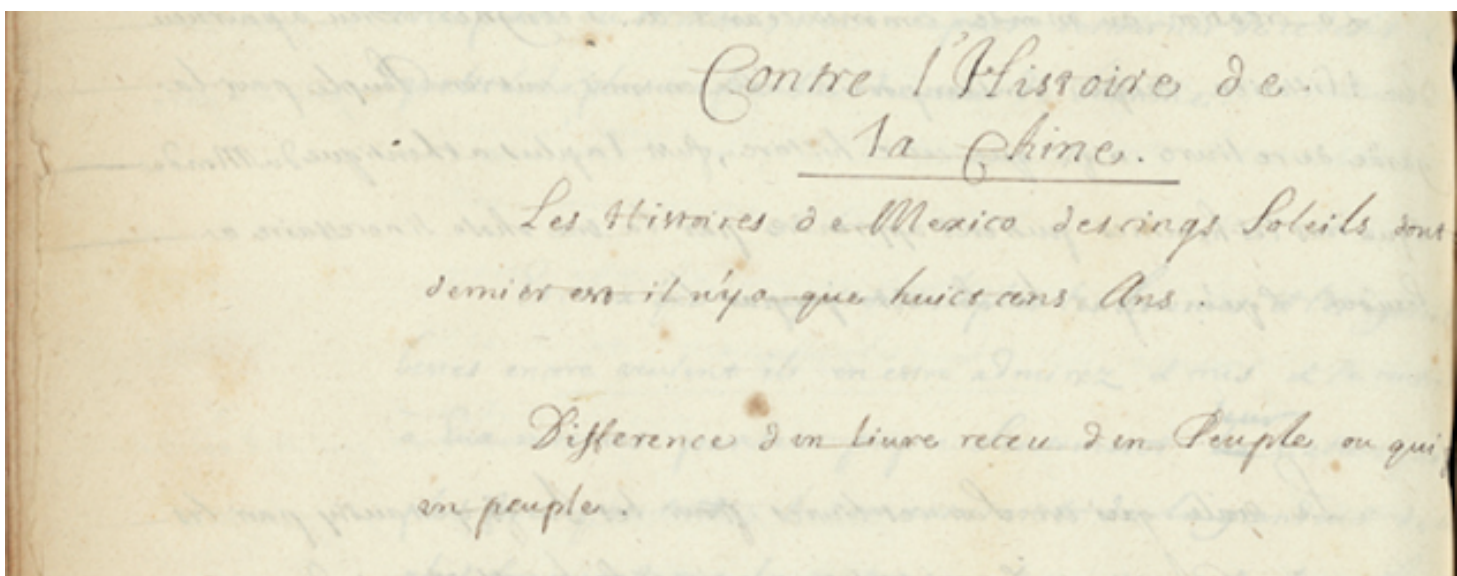 Contre l'Histoire de
la Chine.
Les Histoires de Mexico des cinqs Soleils dont
dernier est il n'y a que huict cens Ans.
Difference d'un liure receu d'un Peuple ou qui
un peuple.